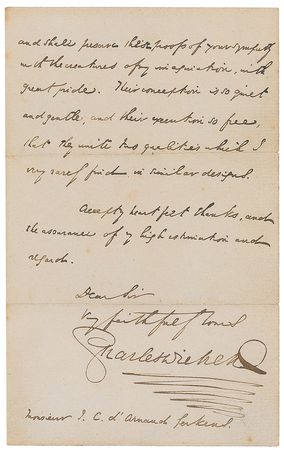 and shall preserve these proofs of your sympathy
with the creatures of my imagination, with
great pride. Their conception is so quiet
and gentle, and their execution so free,
that they unite two qualities which I
very rarely find in similar designs.
Accept my heartfelt thanks, and
the assurance of my high estimation and
regard.
Dear Sir
Very faithfully Yours
Charles Dickens
Monsieur J. C. d'Arnaud Gerkens.